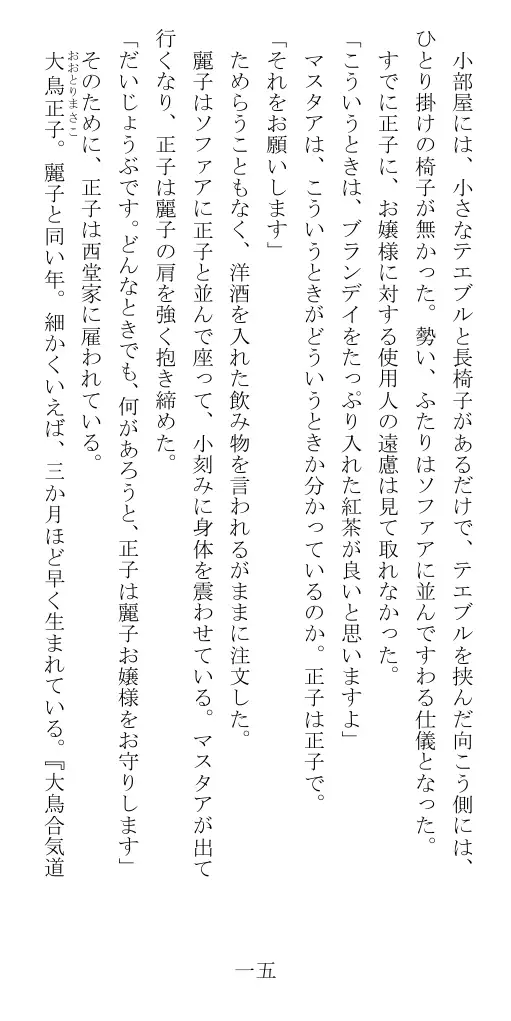 小部屋には、小さなテエブルと長椅子があるだけで、テエブルを挟んだ向こう側には、
ひとり掛けの椅子が無かった。勢い、ふたりはソファアに並んですわる仕儀となった。
すでに正子に、お嬢様に対する使用人の遠慮は見て取れなかった。
「こういうときは、ブランデイをたっぷり入れた紅茶が良いと思いますよ」
マスタアは、こういうときがどういうときか分かっているのか。正子は正子で。
「それをお願いします」
ためらうこともなく、洋酒を入れた飲み物を言われるがままに注文した。
麗子はソファアに正子と並んで座って、小刻みに身体を震わせている。マスタアが出て
行くなり、正子は麗子の肩を強く抱き締めた。
「だいじょうぶです。どんなときでも、何があろうと、正子は麗子お嬢様をお守りします」
そのために、正子は西堂家に雇われている。
おおとりまさこ
大鳥正子。麗子と同い年。細かくいえば、三か月ほど早く生まれている。『大鳥合気道
一五